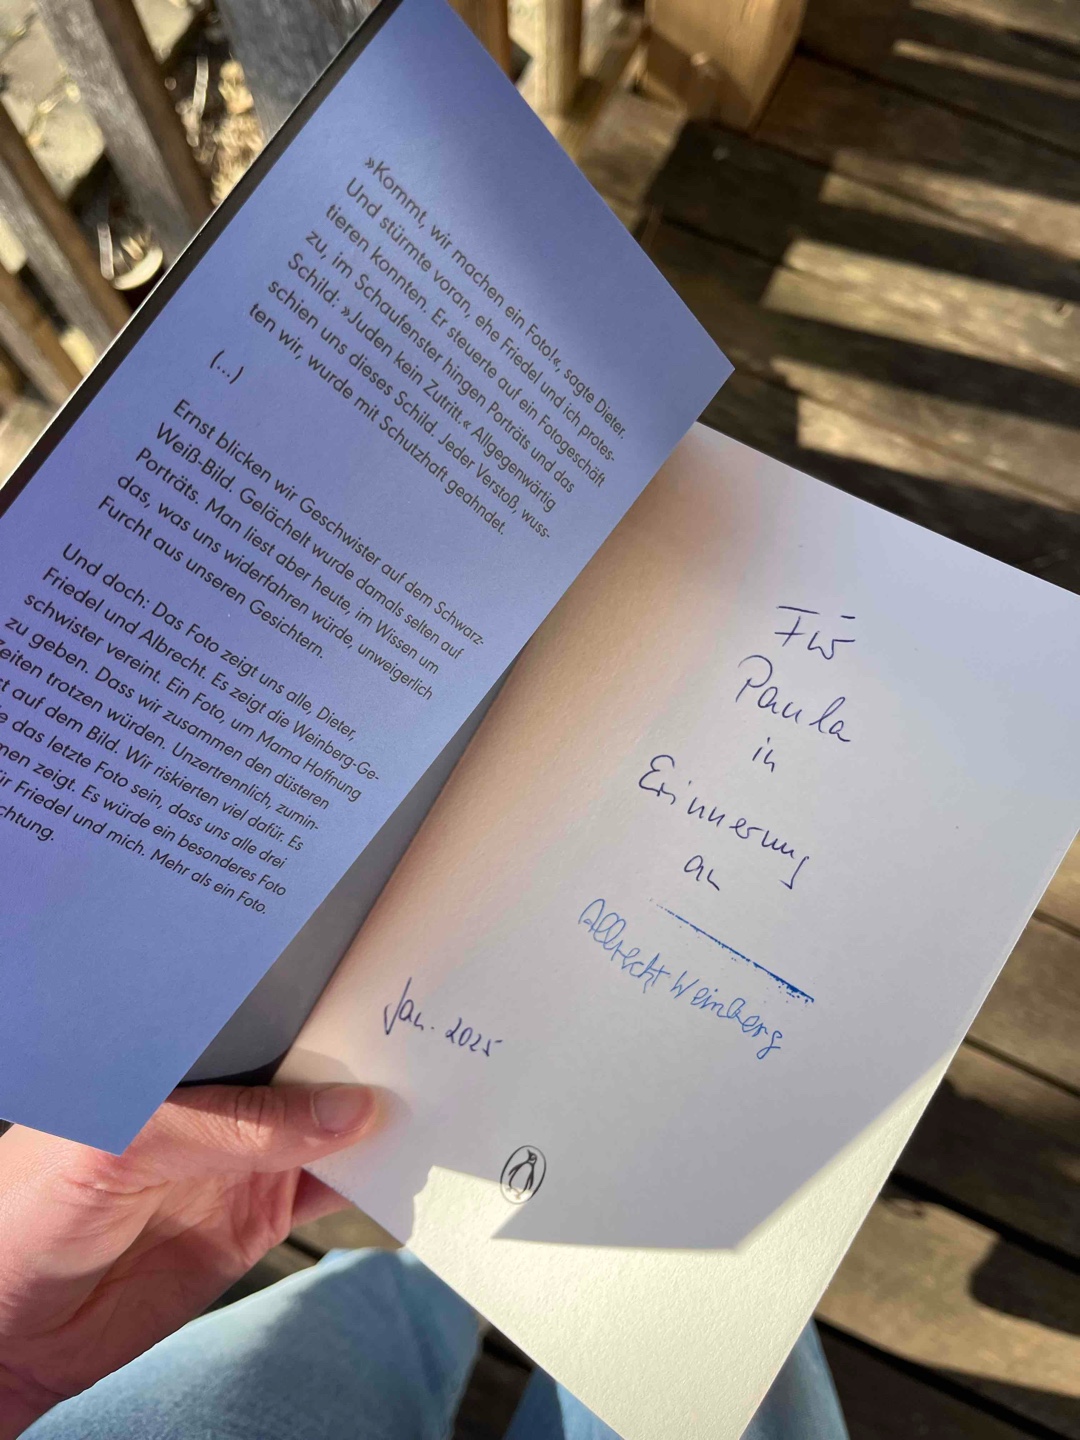 »Kommt, wir machen ein Foto!«, sagte Dieter.
Und stürmte voran, ehe Friedel und ich protes-
tieren konnten. Er steuerte auf ein Fotogeschäft
zu, im Schaufenster hingen Porträts und das
Schild: »Juden kein Zutritt.« Allgegenwärtig
schien uns dieses Schild. Jeder Verstoß, wuss-
ten wir, wurde mit Schutzhaft geahndet.
(...)
Ernst blicken wir Geschwister auf dem Schwarz-
Weiß-Bild. Gelächelt wurde damals selten auf
Porträts. Man liest aber heute, im Wissen um
das, was uns widerfahren würde, unweigerlich
Furcht aus unseren Gesichtern.
Und doch: Das Foto zeigt uns alle, Dieter,
Friedel und Albrecht. Es zeigt die Weinberg-Ge-
schwister vereint. Ein Foto, um Mama Hoffnung
zu geben. Dass wir zusammen den düsteren
Zeiten trotzen würden. Unzertrennlich, zumin-
auf dem Bild. Wir riskierten viel dafür. Es
das letzte Foto sein, dass uns alle drei
zeigt. Es würde ein besonderes Foto
Friedel und mich. Mehr als ein Foto.
Für
Paula
in
Erinnerung
an
Albrecht Weinberg
Jan. 2025